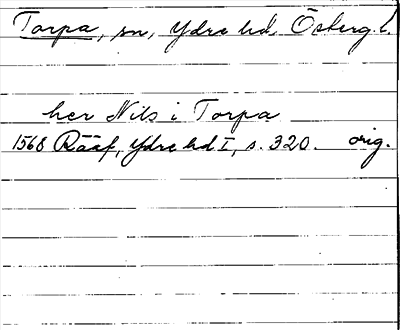 Torpa, sn, Ydre hd, Österg. l.
her Nils i Torpa
1568 Rääf, Ydre hd I, s. 320. orig.